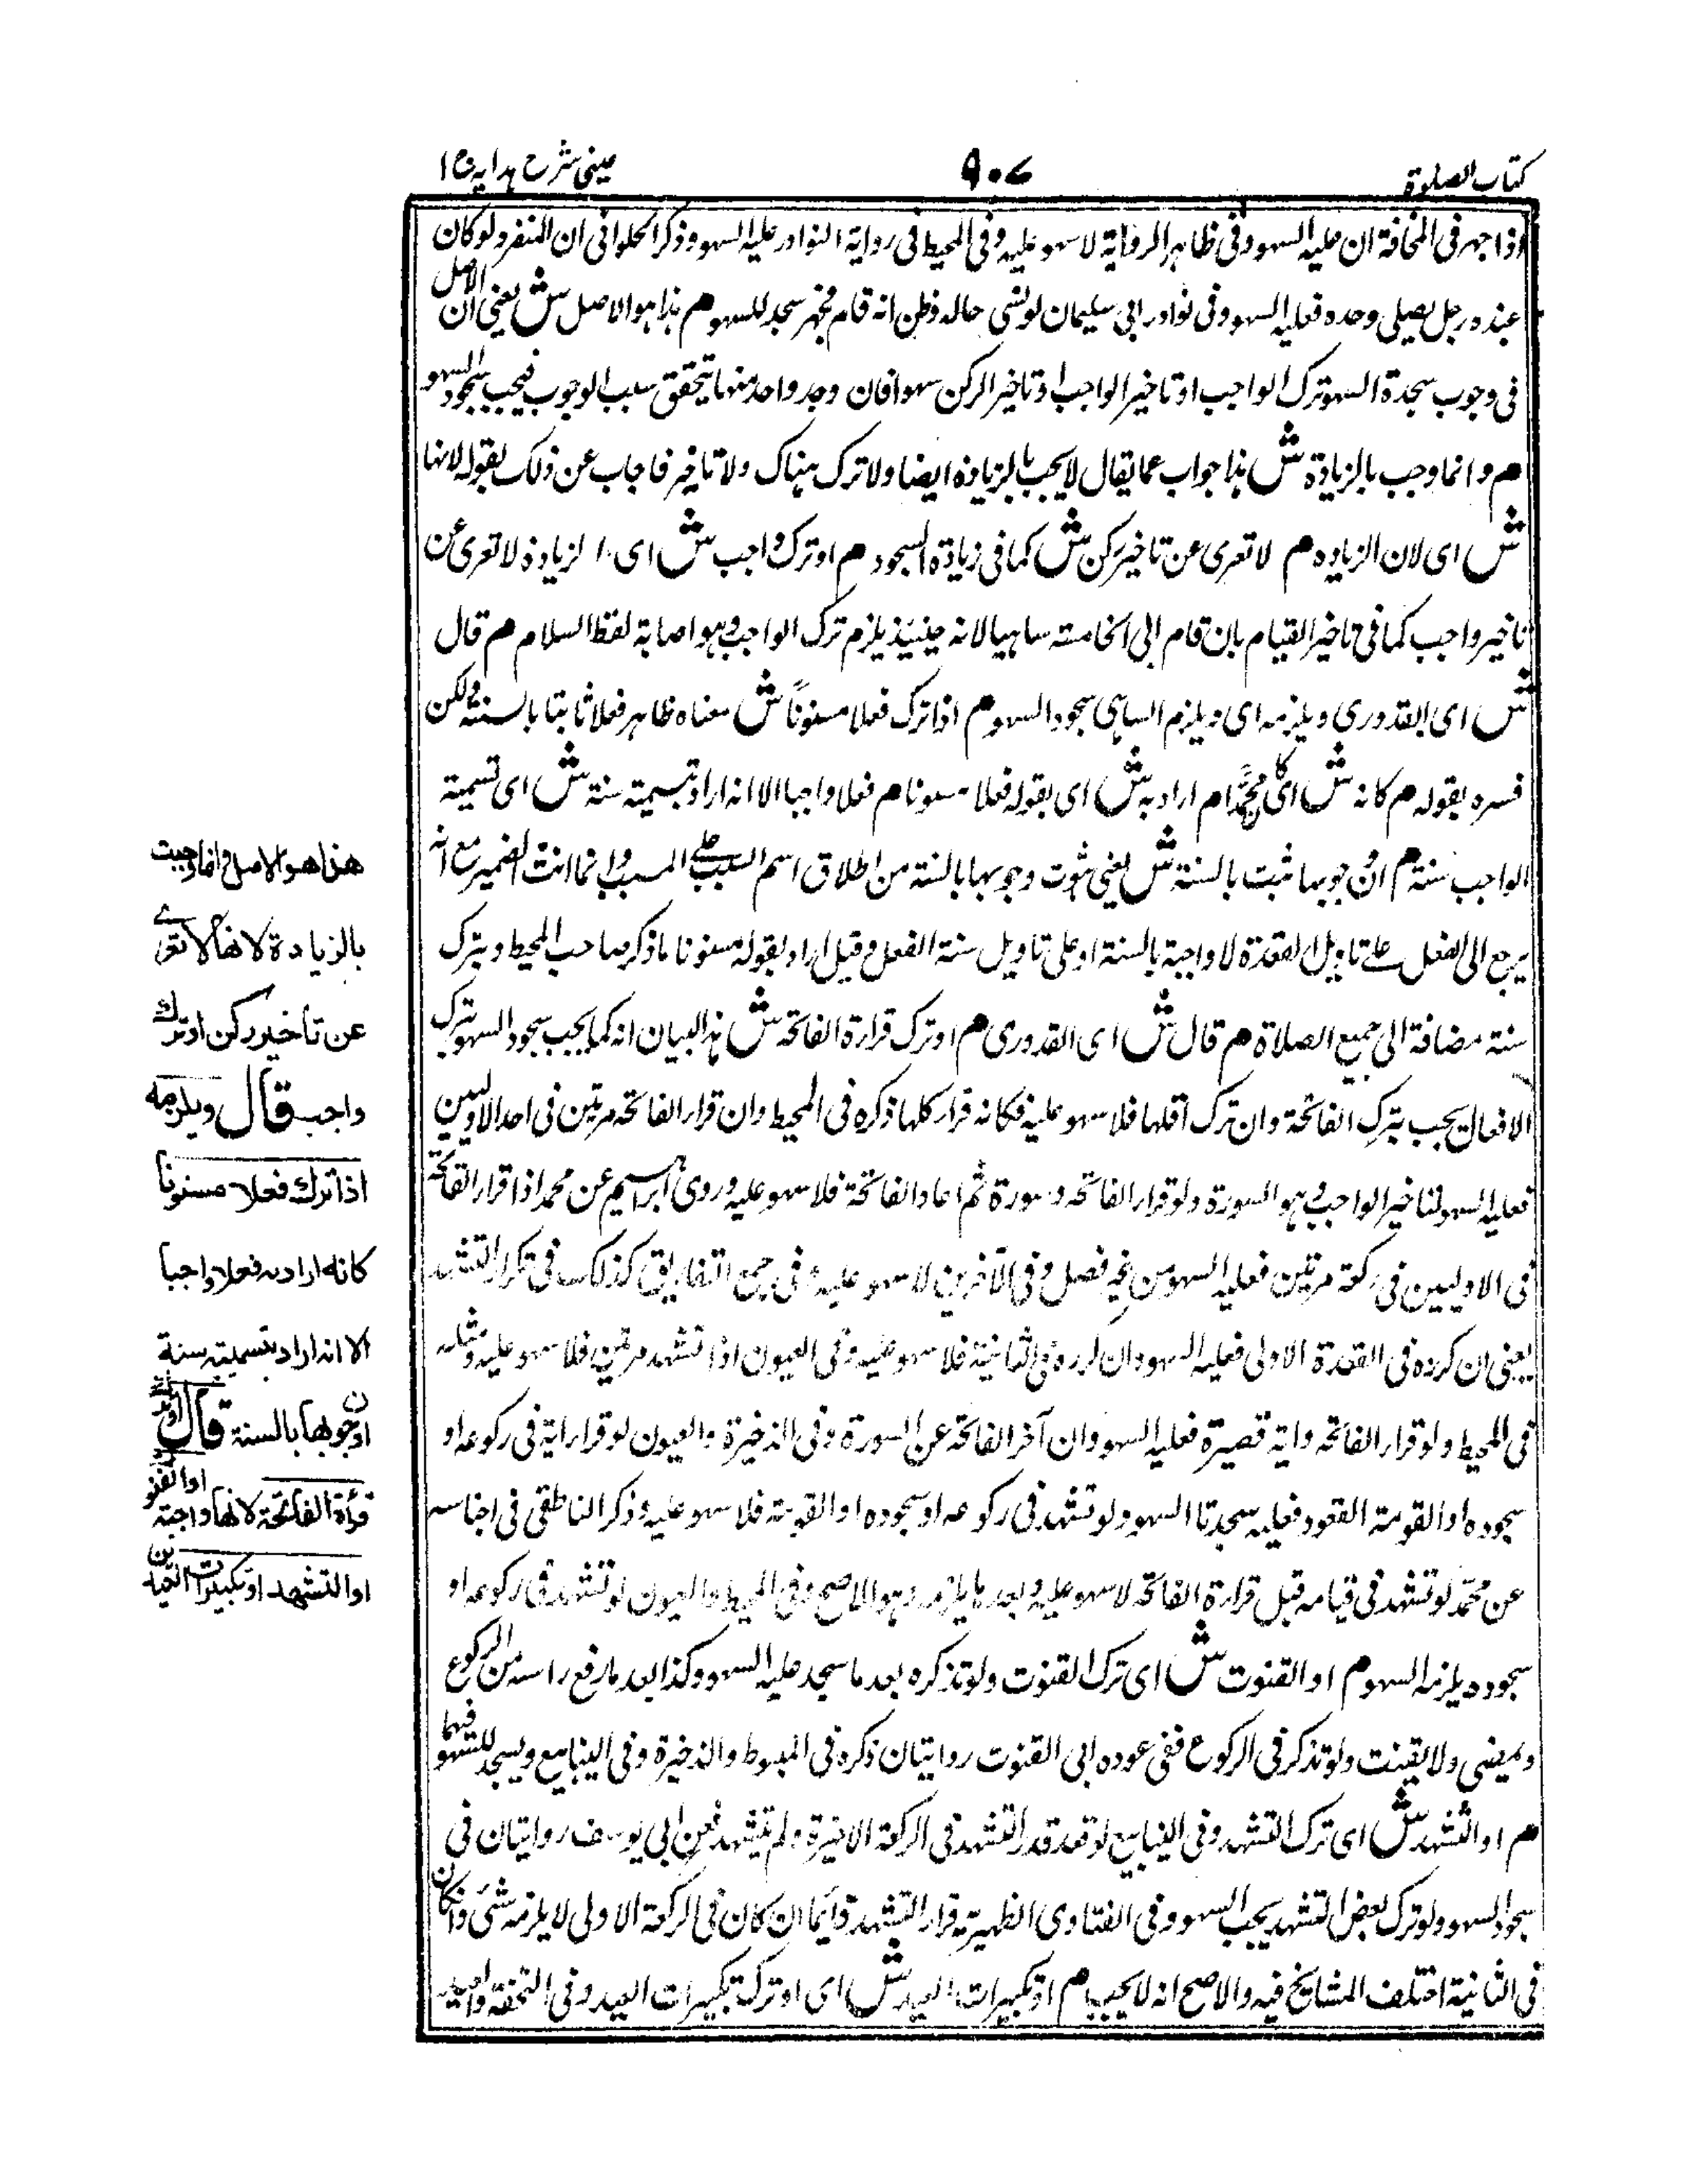 كتاب الصلوة
٩٠٧
عينى شرح هدايه ج ١
اذا جهر فى المخافتة ان عليه السهو وفى ظاهر الرواية لا سهو عليه وفى المحيط فى رواية النوادر عليه السهو وذكر الحلوانى ان المنفرد لو كان
عنده رجل يصلى وحده فعليه السهو وفى نوادر ابى سليمان لو نسى حاله وظن انه قام فجهر سجد للسهو م هذا هو الاصل ش يعنى ان الاصل
فى وجوب سجدة السهو ترك الواجب او تاخير الواجب او تاخير الركن سهوا فان وجد واحد منها يتحقق سبب الوجوب فيجب سجود السهو
م وانما وجب بالزيادة ش هذا جواب عما يقال لا يجب بالزيادة ايضا ولا ترك هناك ولا تاخير فاجاب عن ذلك بقوله لانها
ش اى لان الزيادة م لا تعرى عن تاخير ركن ش كما فى زيادة السجود م او ترك واجب ش اى الزيادة لا تعرى عن
تاخير واجب كما فى تاخير القيام بان قام الى الخامسة ساهيا لانه حينئذ يلزم ترك الواجب وهو اصابة لفظ السلام م قال
ش اى القدورى ويلزمه اى ويلزم الساهى سجود السهو م اذا ترك فعلا مسنوناً ش معناه ظاهر فعلا ثابتا بالسنة ولكن
فسره بقوله م كانه ش اى كان محمدا م اراد به ش اى بقوله فعلا مسنونا م فعلا واجبا الا انه اراد بتسميته سنة ش اى تسمية
الواجب سنة م ان وجوبها ثبت بالسنة ش يعنى ثبوت وجوبها بالسنة من اطلاق اسم السبب على المسبب وانما انث الضمير مع انه
يرجع الى الفعل على تاويل القعدة لا واجبة بالسنة او على تاويل سنة الفعل وقيل اراد بقوله مسنونا ما ذكر صاحب المحيط وبترك
سنة مضافة الى جميع الصلاة م قال ش اى القدورى م او ترك قراءة الفاتحة ش هذا لبيان انه كما يجب سجود السهو بترك
الافعال يجب بترك الفاتحة وان ترك اقلها فلا سهو عليه فكانه قرا كلها ذكره فى المحيط وان قرا الفاتحة مرتين فى احد الاوليين
فعليه السهو لتاخير الواجب وهو السورة ولو قرا الفاتحة وسورة ثم اعاد الفاتحة فلا سهو عليه وروى ابراهيم عن محمد اذا قرا الفاتحة
فى الاوليين فى ركعة مرتين فعليه السهو من غير فصل وفى الآخريين لا سهو عليه وفى جمع التفاريق كذلك فى تكرار التشهد
يعنى ان كرره فى القعدة الاولى فعليه السهو وان كرره فى الثانية فلا سهو عليه وفى العيون اذا تشهد مرتين فلا سهو عليه ومثله
فى المحيط ولو قرا الفاتحة واية قصيرة فعليه السهو وان آخر الفاتحة عن السورة وفى الذخيرة والعيون لو قرا اية فى ركوعه او
سجوده او القومة القعود فعليه سجدتا السهو ولو تشهد فى ركوعه او سجوده او القومة فلا سهو عليه وذكر الناطقى فى اجناسه
عن محمد لو تشهد فى قيامه قبل قراءة الفاتحة لا سهو عليه وبعدها يلزمه وهو الاصح وفى المحيط والعيون لو تشهد فى ركوعه او
سجوده يلزمه السهو م او القنوت ش اى ترك القنوت ولو تذكره بعد ما سجد عليه السهو وكذا بعد ما رفع راسه من الركوع
ويمضى ولا يقنت ولو تذكر فى الركوع ففى عوده الى القنوت روايتان ذكره فى المبسوط والذخيرة وفى الينابيع ويسجد للسهو فيهما
م او التشهد ش اى ترك التشهد وفى الينابيع لو قعد قدر التشهد فى الركعة الاخيرة ولم يتشهد فعن ابى يوسف روايتان فى
سجود السهو ولو ترك بعض التشهد يجب السهو وفى الفتاوى الظهيرية قرا التشهد قائما ان كان فى الركعة الاولى لا يلزمه شئ وان كان
فى الثانية اختلف المشايخ فيه والاصح انه لا يجب م او تكبيرات العيد ش اى او ترك تكبيرات العيد وفى التحفة
هذا هو الاصل وانما وجبت
بالزيادة لانها لا تعرى
عن تأخير ركن او ترك
واجب قال ويلزمه
اذا ترك فعلا مسنونا
كانه اراد به فعلا واجبا
الا انه اراد بتسميته سنة
ان وجوبها بالسنة قال او ترك
قراءة الفاتحة لانها واجبة او القنوت
او التشهد او تكبيرات العيدين